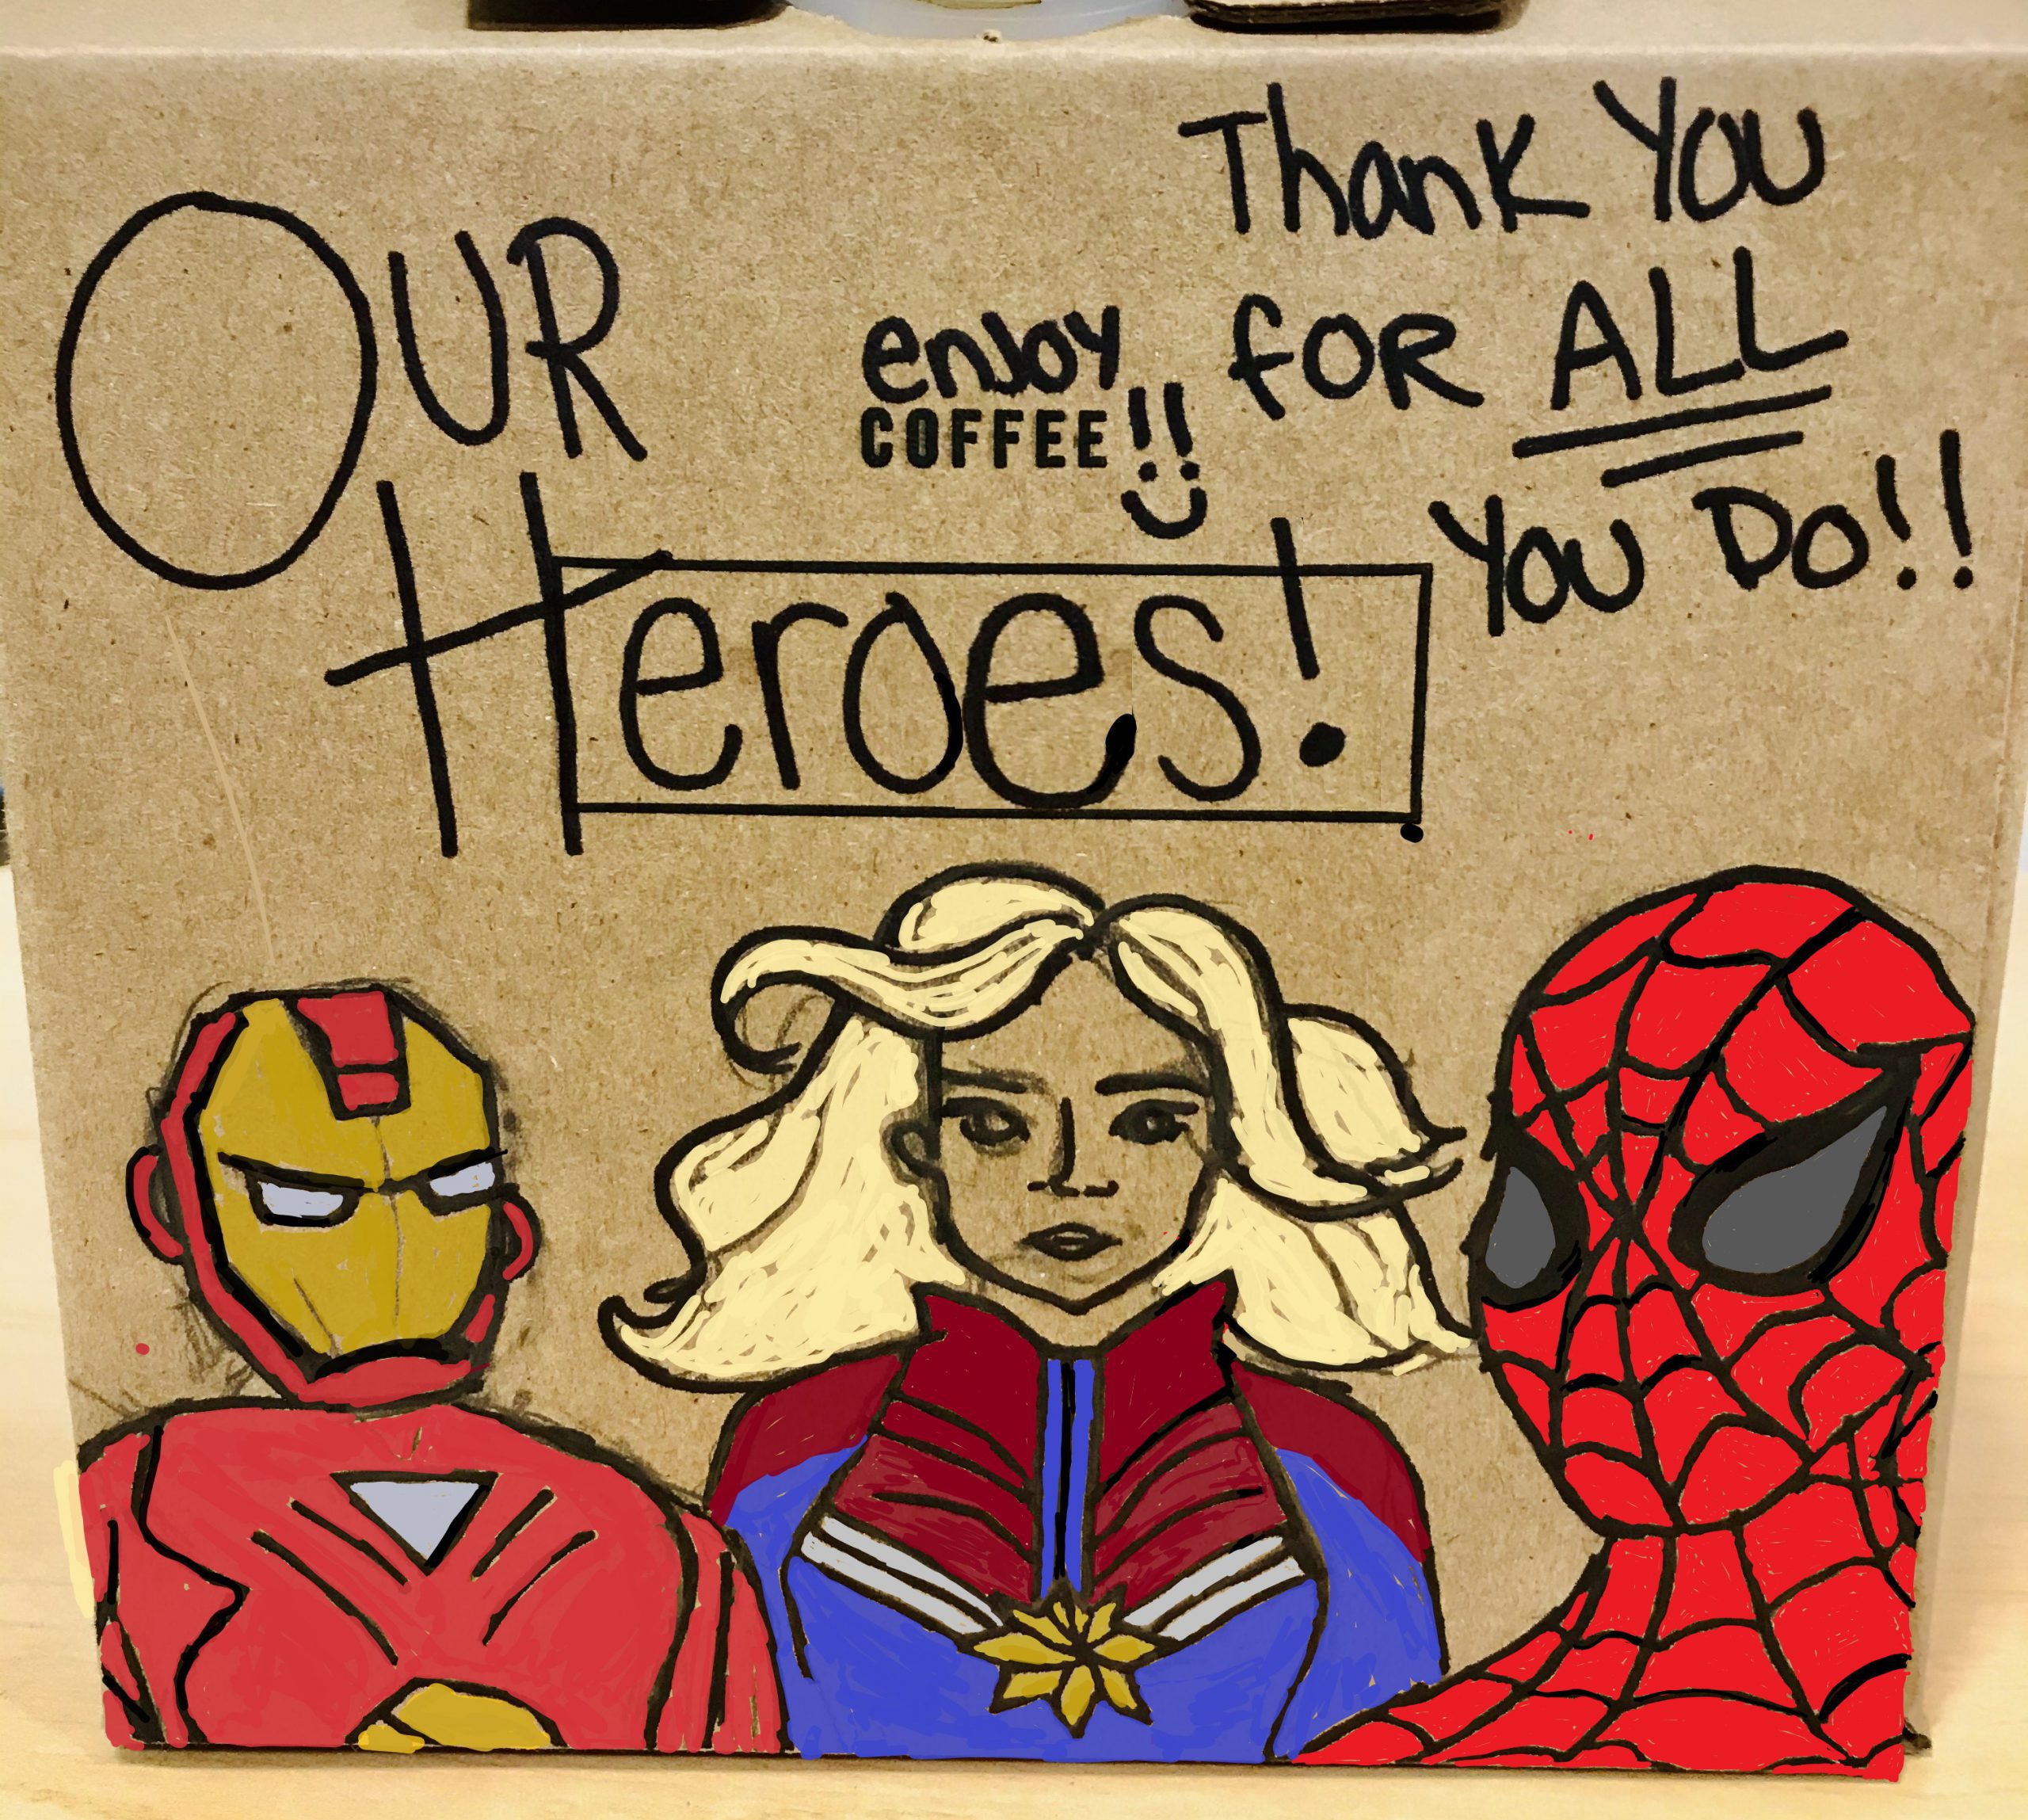 OUR
Heroes!
enjoy
COFFEE!!
Thank You
for ALL
You Do!!